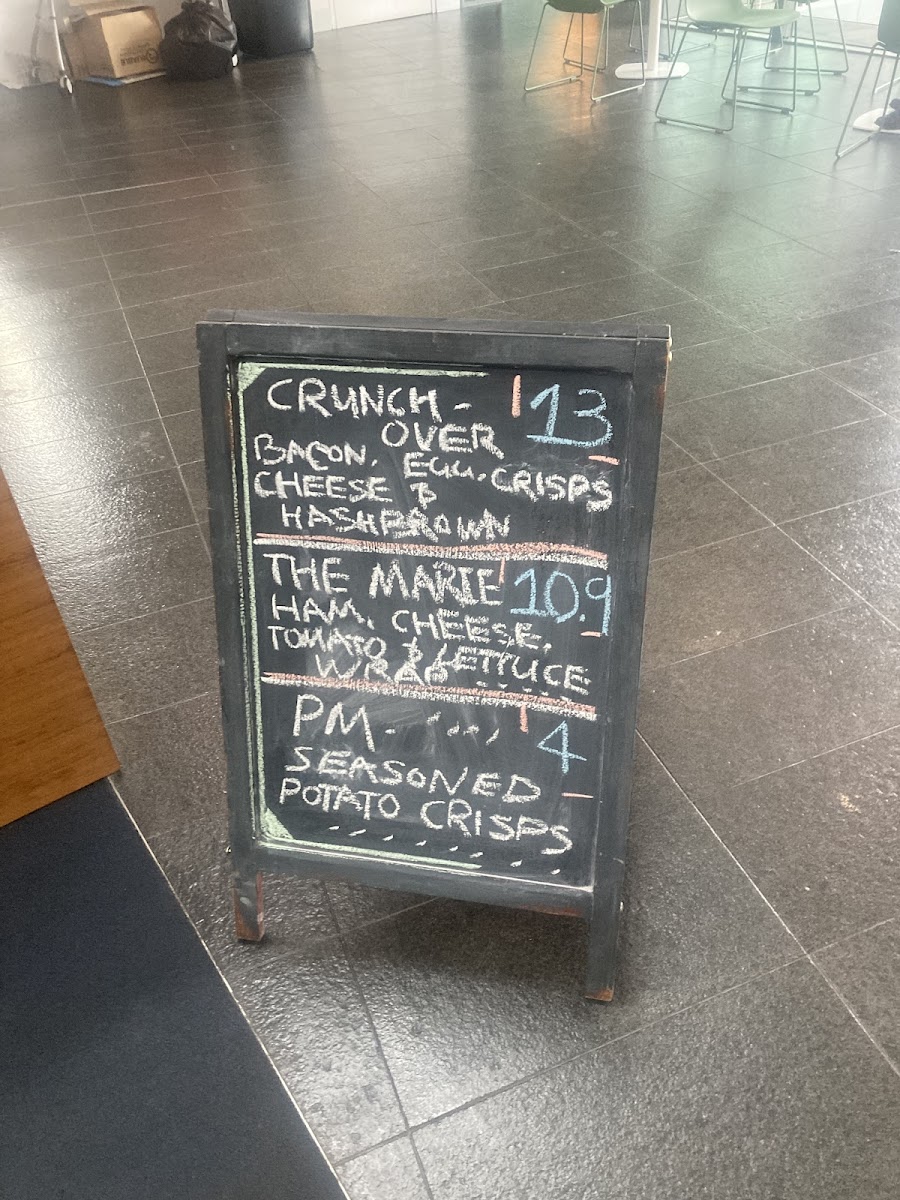 CRUNCH- 13
OVER
BACON, EGG, CRISPS
CHEESE &
HASHBROWN
THE MARIE 10.9
HAM, CHEESE,
TOMATO & LETTUCE
WRAP
PM- 4
SEASONED
POTATO CRISPS